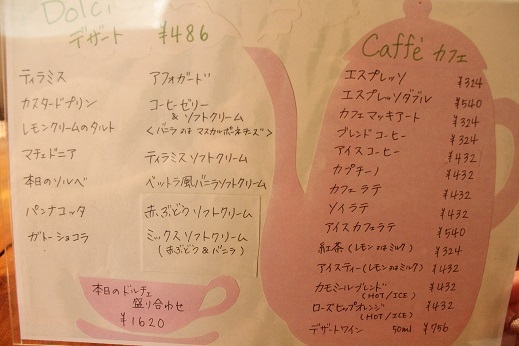 Dolci
デザート ¥486
ティラミス
カスタードプリン
レモンクリームのタルト
マチェドニア
本日のソルベ
パンナコッタ
ガトーショコラ
アフォガード
コーヒーゼリー
& ソフトクリーム
<バニラ or マスカルポーネチーズ>
ティラミスソフトクリーム
ベットラ風バニラソフトクリーム
赤ぶどうソフトクリーム
ミックスソフトクリーム
(赤ぶどう & バニラ)
本日のドルチェ
盛り合わせ
¥1620
Caffé カフェ
エスプレッソ ¥324
エスプレッソダブル ¥540
カフェマッキアート ¥324
ブレンドコーヒー ¥324
アイスコーヒー ¥432
カプチーノ ¥432
カフェラテ ¥432
ソイラテ ¥432
アイスカフェラテ ¥540
紅茶(レモン or ミルク) ¥324
アイスティー(レモン or ミルク) ¥432
カモミールブレンド ¥432
(HOT/ICE)
ローズヒップオレンジ ¥432
(HOT/ICE)
デザートワイン 50ml ¥756